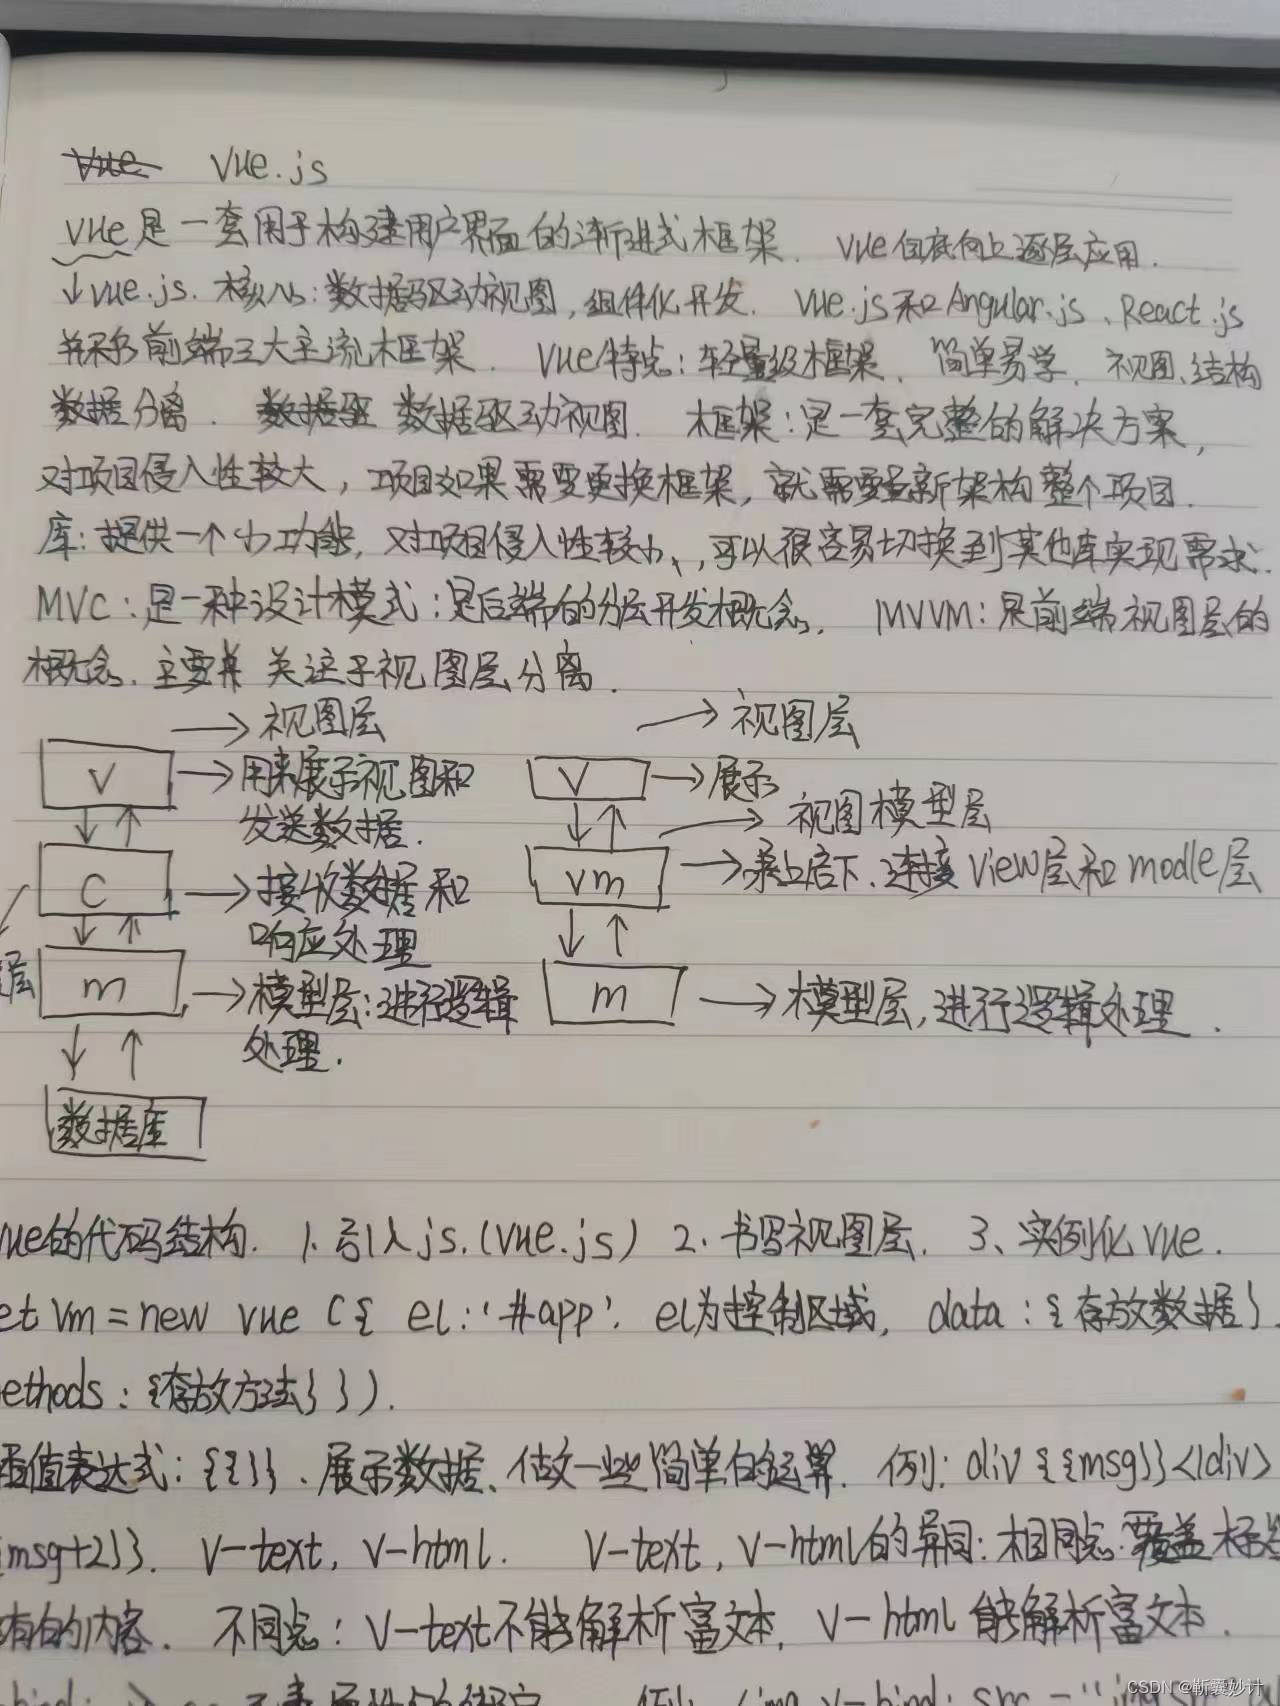 Vue.js
vue是一套用于构建用户界面的渐进式框架. vue自底向上逐层应用.
↓vue.js. 核心: 数据驱动视图, 组件化开发. vue.js和Angular.js、React.js
并称为前端三大主流框架. vue特点: 轻量级框架、简单易学、视图、结构
数据分离. 数据驱动视图. 框架: 是一套完整的解决方案,
对项目侵入性较大, 项目如果需要更换框架, 就需要重新架构整个项目.
库: 提供一个小功能, 对项目侵入性较小, 可以很容易切换到其他库实现需求.
MVC: 是一种设计模式: 是后端的分层开发概念. MVVM: 是前端视图层的
概念、主要 关注于视图层分离.
→视图层 →视图层
V →用来展示视图和 V →展示
发送数据. →视图模型层
C →接收数据和 vm →承上启下、连接view层和modle层
响应处理
层 m →模型层: 进行逻辑 m →模型层, 进行逻辑处理.
处理.
数据库
vue的代码结构. 1. 引入js.(vue.js) 2. 书写视图层. 3、实例化vue.
et vm = new vue ({ el: '#app'. el为控制区域, data: {存放数据}.
ethods: {存放方法} }).
值表达式: {{}}、展示数据、做一些简单的运算. 例: div {{msg}}</div>
msg+2}}. v-text, v-html. v-text, v-html的异同: 相同点: 覆盖标
有的内容. 不同点: v-text不能解析富文本, v-html能解析富文本.
CSDN @靳囊妙计